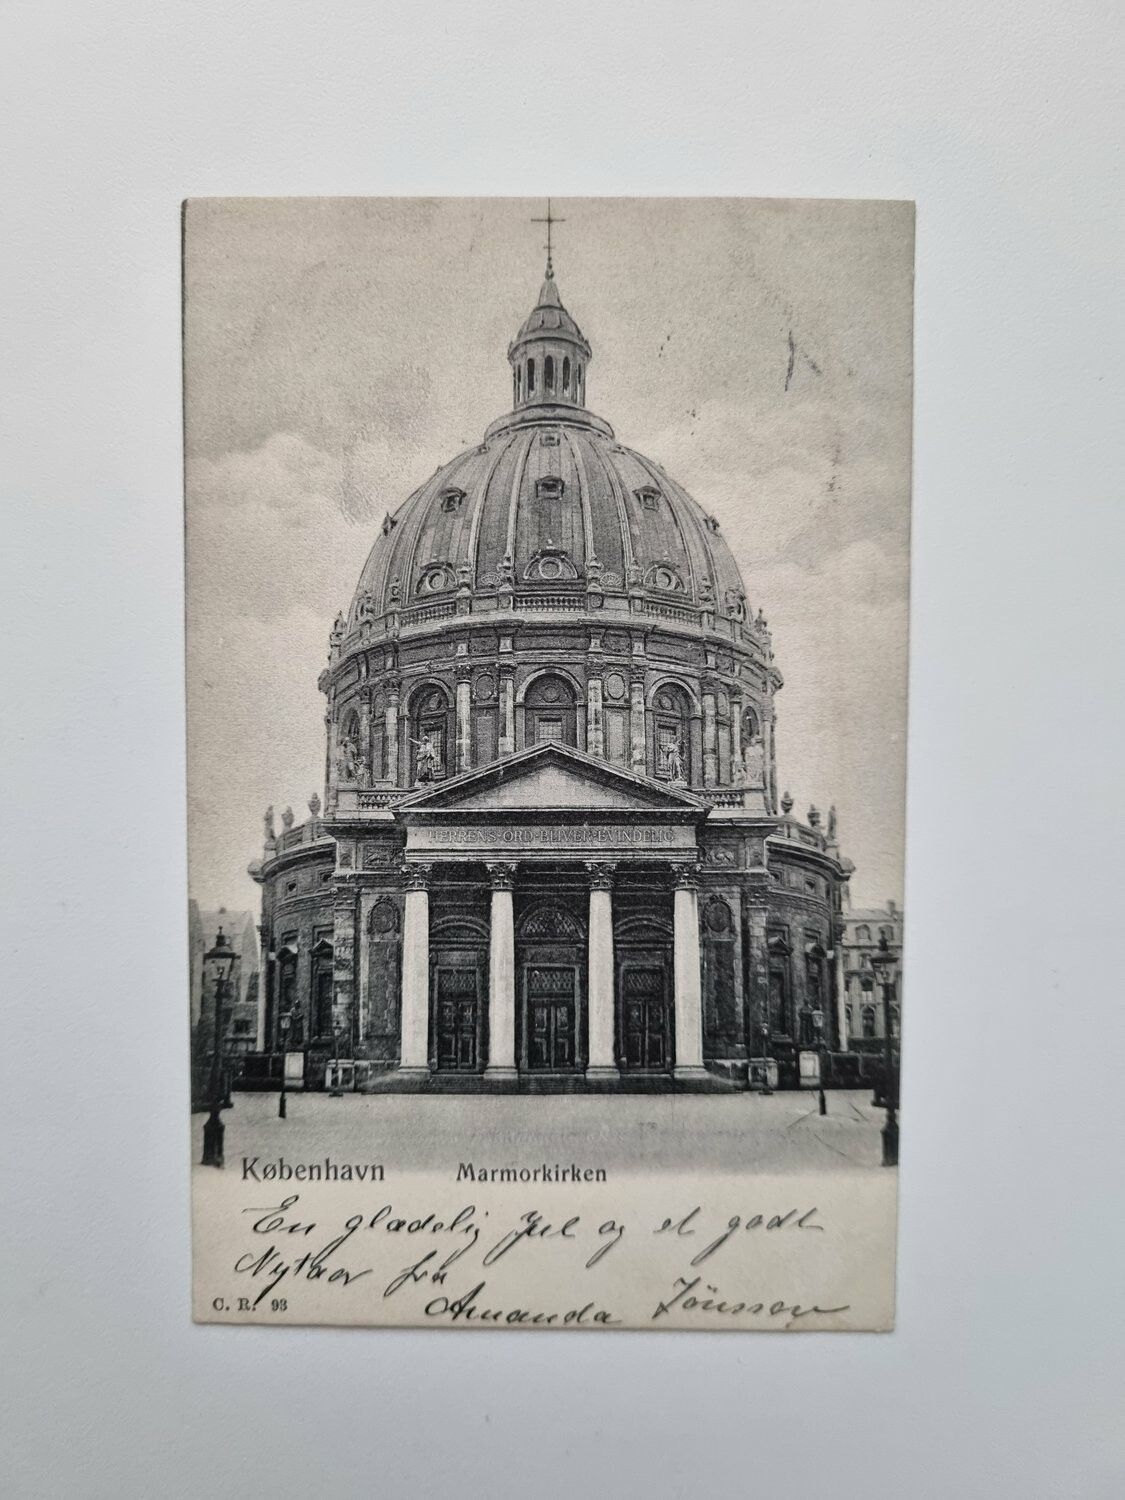 HERRENS·ORD·BLIVER·EVINDELIG
København Marmorkirken
En glædelig Jul og et godt
Nytaar fra
Amanda Jönsson
C. R. 93